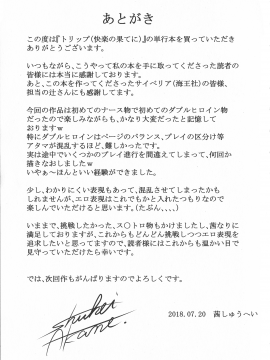 あとがき
この度は『トリップ(快楽の果てに)』の単行本を買っていただき
ありがとうございます。
いつもながら、こうやって私の本を手に取ってくださった読者の
皆様には本当に感謝しております。
あと、この本を作ってくださったサイベリア(海王社)の皆様、
担当の辻さんにも感謝してます。
今回の作品は初めてのナース物で初めてのダブルヒロイン物
だったので楽しみながらも、かなり大変だったと記憶して
おりますw
特にダブルヒロインはページのバランス、プレイの区分け等
アタマが混乱するほど、難しかったです。
実は途中でいくつかのプレイ進行を間違えてしまって、何回か
描きなおしましたw
いやぁ〜ほんといい経験ができました。
少し、わかりにくい表現もあって、混乱させてしまったかも
しれませんが、エロ表現はこれでもかと入れたつもりなので
楽しんでいただけると思います。(たぶん、、、、)
いままで、挑戦したかった、ス〇トロ物もかけましたし、茜なりに
満足しておりますが、これからもどんどん挑戦しつつエロ表現を
追求したいと思ってますので、読者様にはこれからも温かい目で
見守っていただけたら幸いです。
では、次回作もがんばりますのでよろしくです。
Shuhei
Akane.
2018.07.20 茜しゅうへい